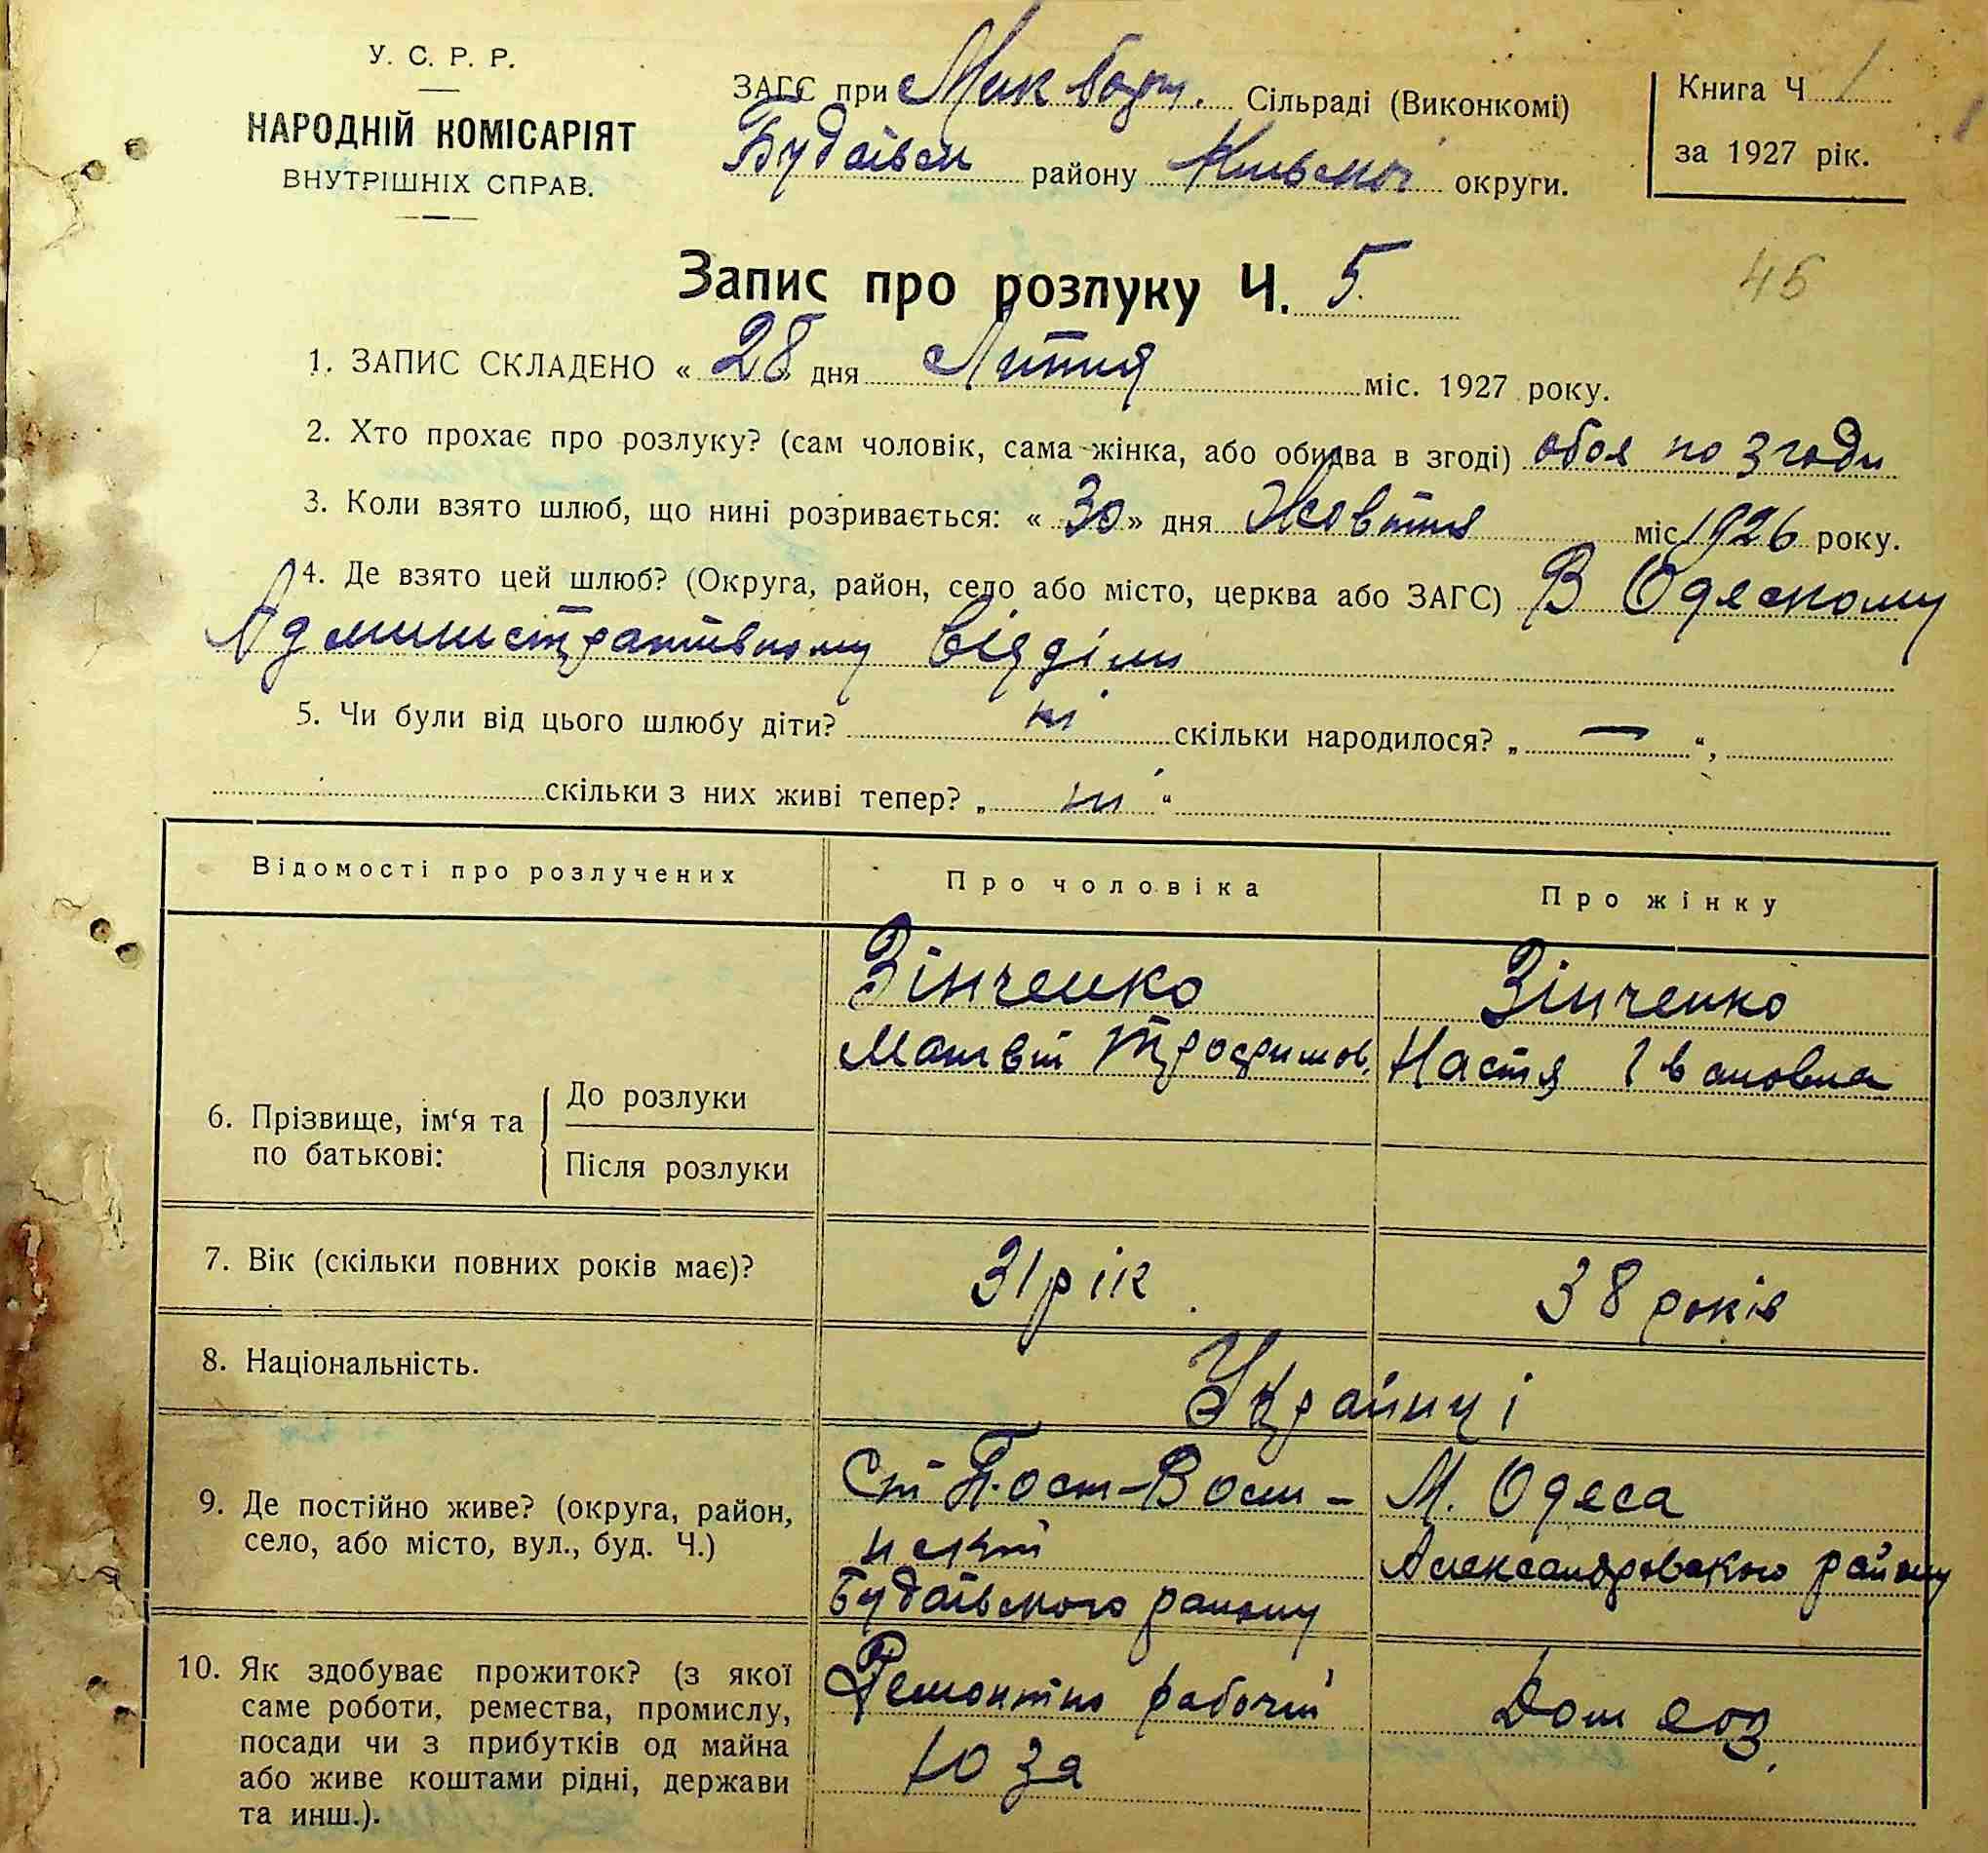 У. С. Р. Р.
НАРОДНІЙ КОМІСАРІЯТ
ВНУТРІШНІХ СПРАВ.
ЗАГС при Мик борщ. Сільраді (Виконкомі)
Будаівськ району Киівськоі округи.
Книга Ч 1
за 1927 рік.
45
Запис про розлуку Ч. 5.
1. ЗАПИС СКЛАДЕНО « 28 » дня Липня міс. 1927 року.
2. Хто прохає про розлуку? (сам чоловік, сама жінка, або обидва в згоді) обоя по згоди
3. Коли взято шлюб, що нині розривається: « 30 » дня Жовтня міс 1926 року.
4. Де взято цей шлюб? (Округа, район, село або місто, церква або ЗАГС) В Одескому
Административному відділи
5. Чи були від цього шлюбу діти? ні скільки народилося? „ — “,
скільки з них живі тепер? „ ні “
Відомості про розлучених Про чоловіка Про жінку
6. Прізвище, ім‘я та по батькові:
До розлуки
Зінченко
Матвій Трофимов.
Зінченко
Настя Івановна
Після розлуки
7. Вік (скільки повних років має)? 31 рік. 38 років
8. Національність. Украйнці
9. Де постійно живе? (округа, район,
село, або місто, вул., буд. Ч.)
Ст П.ост-Волин-
ський
Будаівського району
М. Одеса
Александровского району
10. Як здобуває прожиток? (з якої
саме роботи, ремества, промислу,
посади чи з прибутків од майна
або живе коштами рідні, держави
та инш.).
Ремонтно рабочий
Юза
Дом хоз.